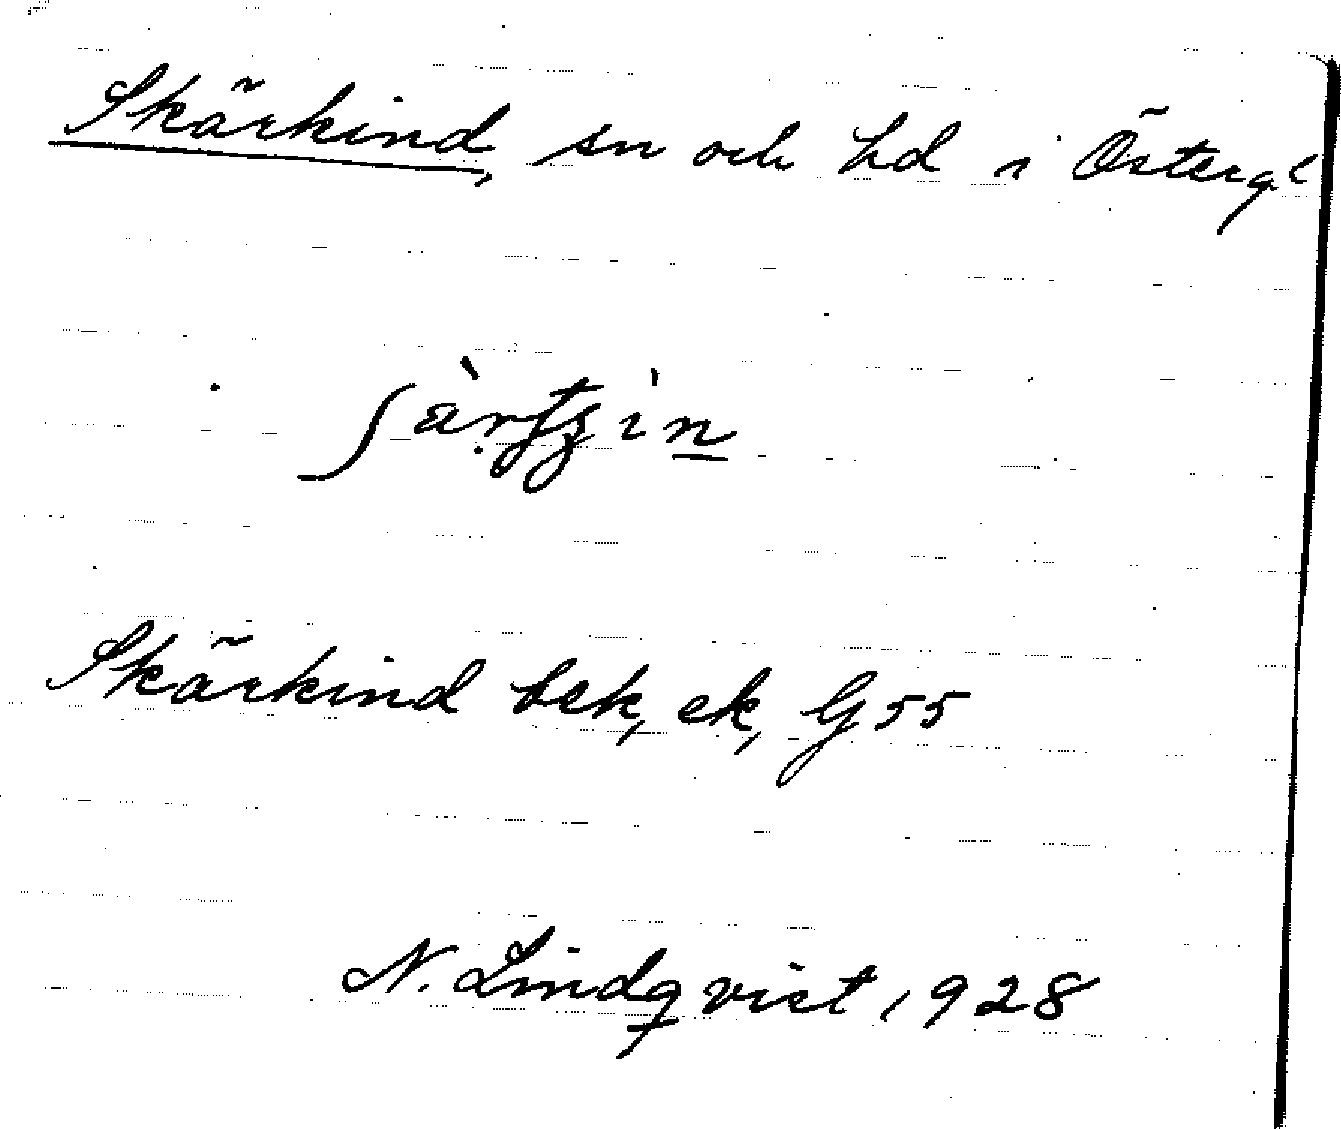 Skärkind, sn och hd i Östergl
Skärkind bek, ek, G 55
N. Lindqvist 1928